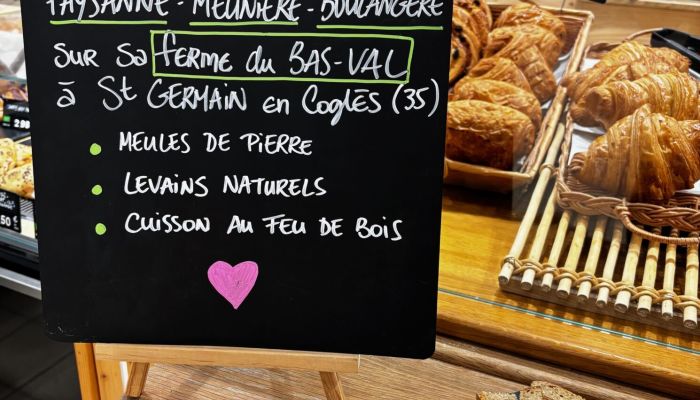 PAYSANNE - MEUNIÈRE - BOULANGÈRE
SUR SA FERME DU BAS-VAL
à ST GERMAIN en COGLÈS (35)
• MEULES DE PIERRE
• LEVAINS NATURELS
• CUISSON AU FEU DE BOIS